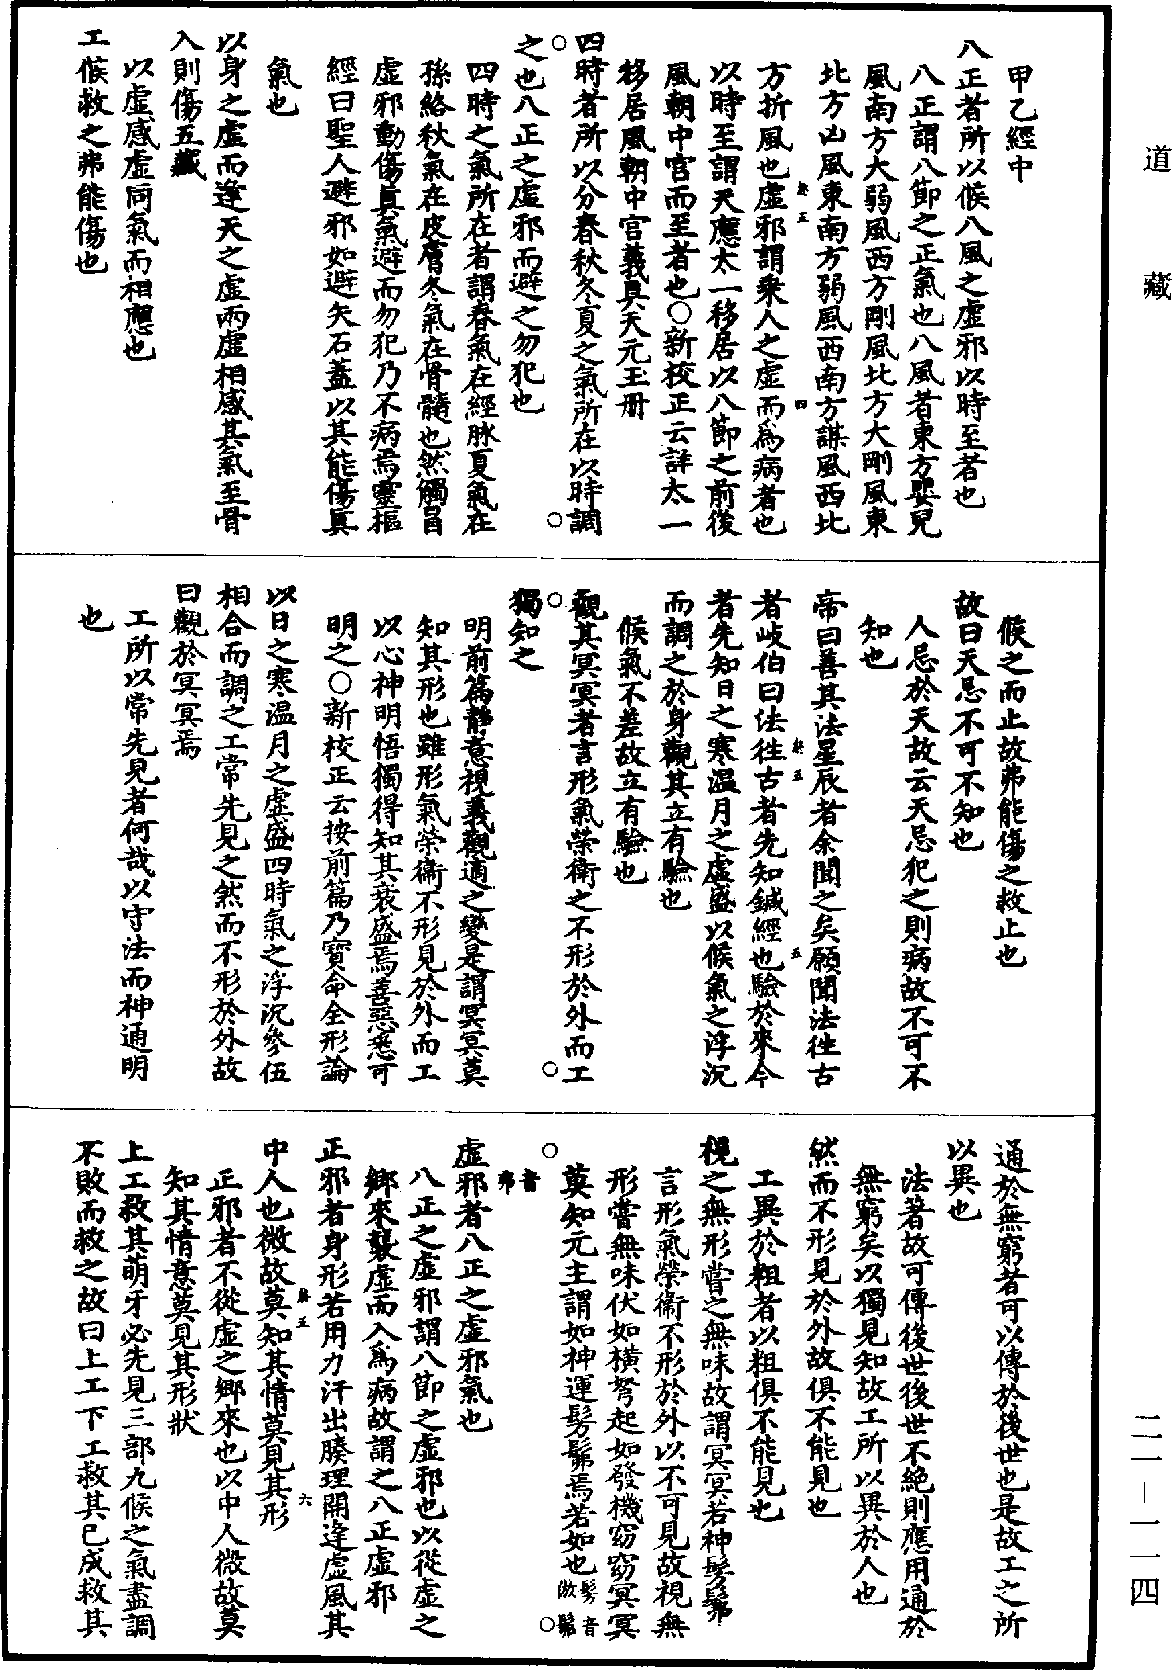 道藏
甲乙經中
八正者所以候八風之虛邪以時至者也
八正謂八節之正氣也八風者東方嬰兒
風南方大弱風西方剛風北方大剛風東
北方凶風東南方弱風西南方謀風西北
方折風也虛邪謂乘人之虛而為病者也
以時至謂天應太一移居以八節之前後
風朝中宮而至者也○新校正云詳太一
移居風朝中宮義具天元玉册
四時者所以分春秋冬夏之氣所在以時調
之也八正之虛邪而避之勿犯也
四時之氣所在者謂春氣在經脉夏氣在
孫絡秋氣在皮膚冬氣在骨髓也然觸冒
虛邪動傷真氣避而勿犯乃不病焉靈樞
經曰聖人避邪如避矢石蓋以其能傷真
氣也
以身之虛而逢天之虛兩虛相感其氣至骨
入則傷五藏
以虛感虛同氣而相應也
工候救之弗能傷也
候之而止故弗能傷之救止也
故曰天忌不可不知也
人忌於天故云天忌犯之則病故不可不
知也
帝曰善其法星辰者余聞之矣願聞法徃古
者岐伯曰法徃古者先知鍼經也驗於來今
者先知日之寒溫月之虛盛以候氣之浮沉
而調之於身觀其立有驗也
候氣不差故立有驗也
觀其冥冥者言形氣榮衛之不形於外而工
獨知之
明前篇靜意視義觀適之變是謂冥冥莫
知其形也雖形氣榮衛不形見於外而工
以心神明悟獨得知其衰盛焉善惡悉可
明之○新校正云按前篇乃寶命全形論
以日之寒溫月之虛盛四時氣之浮沉參伍
相合而調之工常先見之然而不形於外故
曰觀於冥冥焉
工所以常先見者何哉以守法而神通明
也
通於無窮者可以傳於後世也是故工之所
以異也
法著故可傳後世後世不絕則應用通於
無窮矣以獨見知故工所以異於人也
然而不形見於外故俱不能見也
工異於粗者以粗俱不能見也
視之無形嘗之無味故謂冥冥若神髣髴
言形氣榮衛不形於外以不可見故視無
形嘗無味伏如橫弩起如發機窈窈冥冥
莫知元主謂如神運髣髴焉若如也髣音倣髴
音弗
虛邪者八正之虛邪氣也
八正之虛邪謂八節之虛邪也以從虛之
鄉來襲虛而入為病故謂之八正虛邪
正邪者身形若用力汗出腠理開逢虛風其
中人也微故莫知其情莫見其形
正邪者不從虛之鄉來也以中人微故莫
知其情意莫見其形狀
上工救其萌牙必先見三部九候之氣盡調
不敗而救之故曰上工下工救其已成救其
二一—一一四